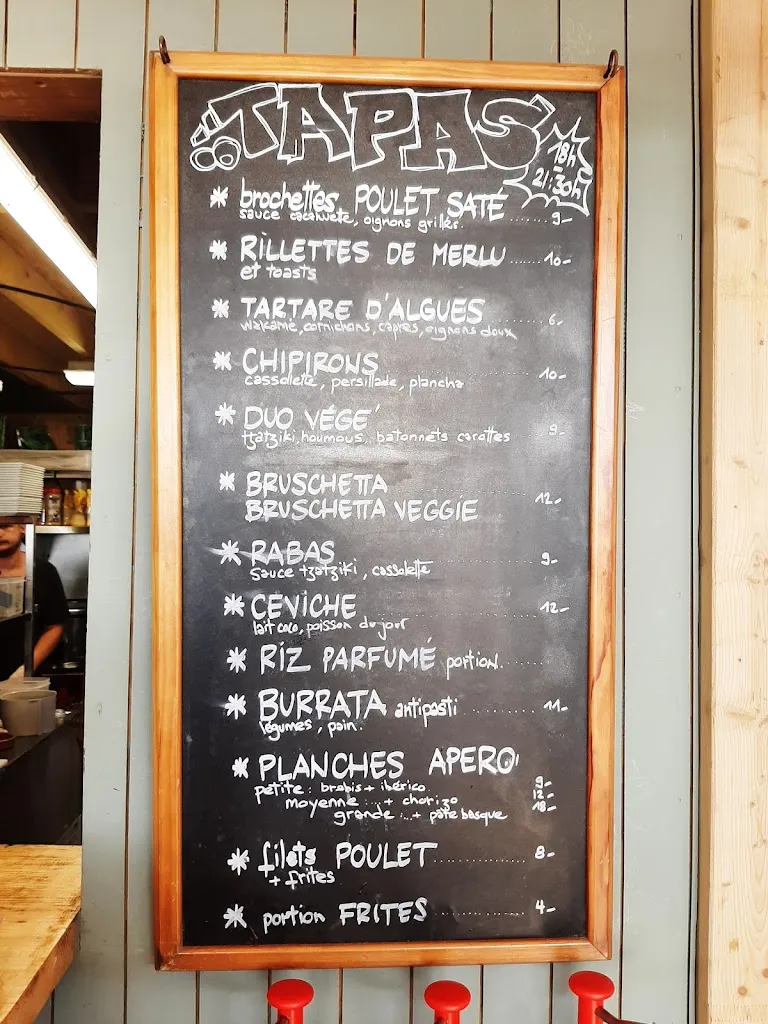 TAPAS
18h
-
21:30h
* brochettes POULET SATÉ ....... 9-
sauce cacahuete, oignons grillés.
* RILLETTES DE MERLU ...... 10-
et toasts
* TARTARE D'ALGUES ........ 6-
wakamé, cornichons, capres, oignons doux
* CHIPIRONS ........ 10-
cassolette, persillade, plancha
* DUO VÉGÉ ........ 9-
tzatziki, houmous, batonnets carottes
* BRUSCHETTA ........ 12-
BRUSCHETTA VEGGIE
* RABAS ........ 9-
sauce tzatziki, cassolette
* CEVICHE ........ 12-
lait coco, poisson du jour
* RIZ PARFUMÉ portion........
* BURRATA antipasti ........ 11-
légumes, pain.
* PLANCHES APERO'
petite : brebis + ibérico 9-
moyenne : ..+ chorizo 12-
grande : ..+ pâté basque 18-
* filets POULET ........ 8-
+ frites
* portion FRITES ........ 4-